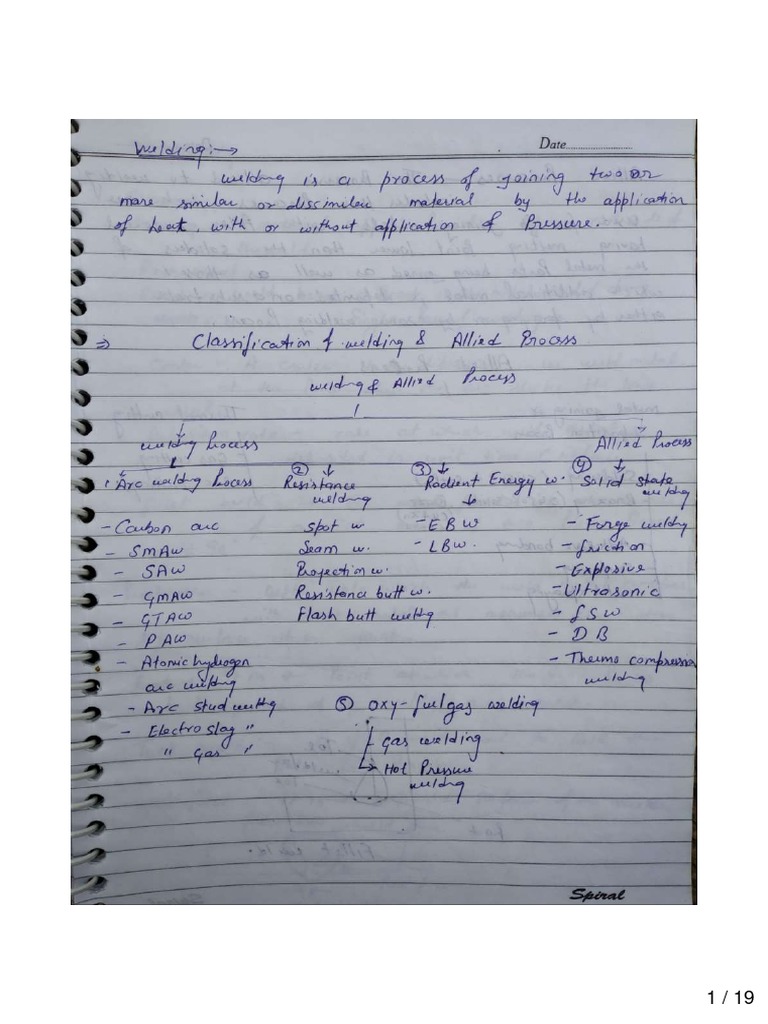 Welding:→
Date
welding is a process of joining two or
more similar or dissimilar material by the application
of heat, with or without application of Pressure.
⇒ Classification of welding & Allied Process
welding & Allied Process
welding Process
Allied Process
1 Arc welding Process
② Resistance welding
③ Radient Energy w.
④ Solid state welding
- Carbon arc
- SMAW
- SAW
- GMAW
- GTAW
- PAW
- Atomic hydrogen
arc welding
- Arc stud welding
- Electro slag "
" Gas "
spot w
Seam w.
Projection w.
Resistance butt w.
Flash butt welding
- EBW
- LBW.
- Forge welding
- friction
- Explosive
- Ultrasonic
- fSW
- DB
- Thermo compression
welding
⑤ oxy-fuel gas welding
Gas welding
Hot Pressure
welding
Spiral
1 / 19